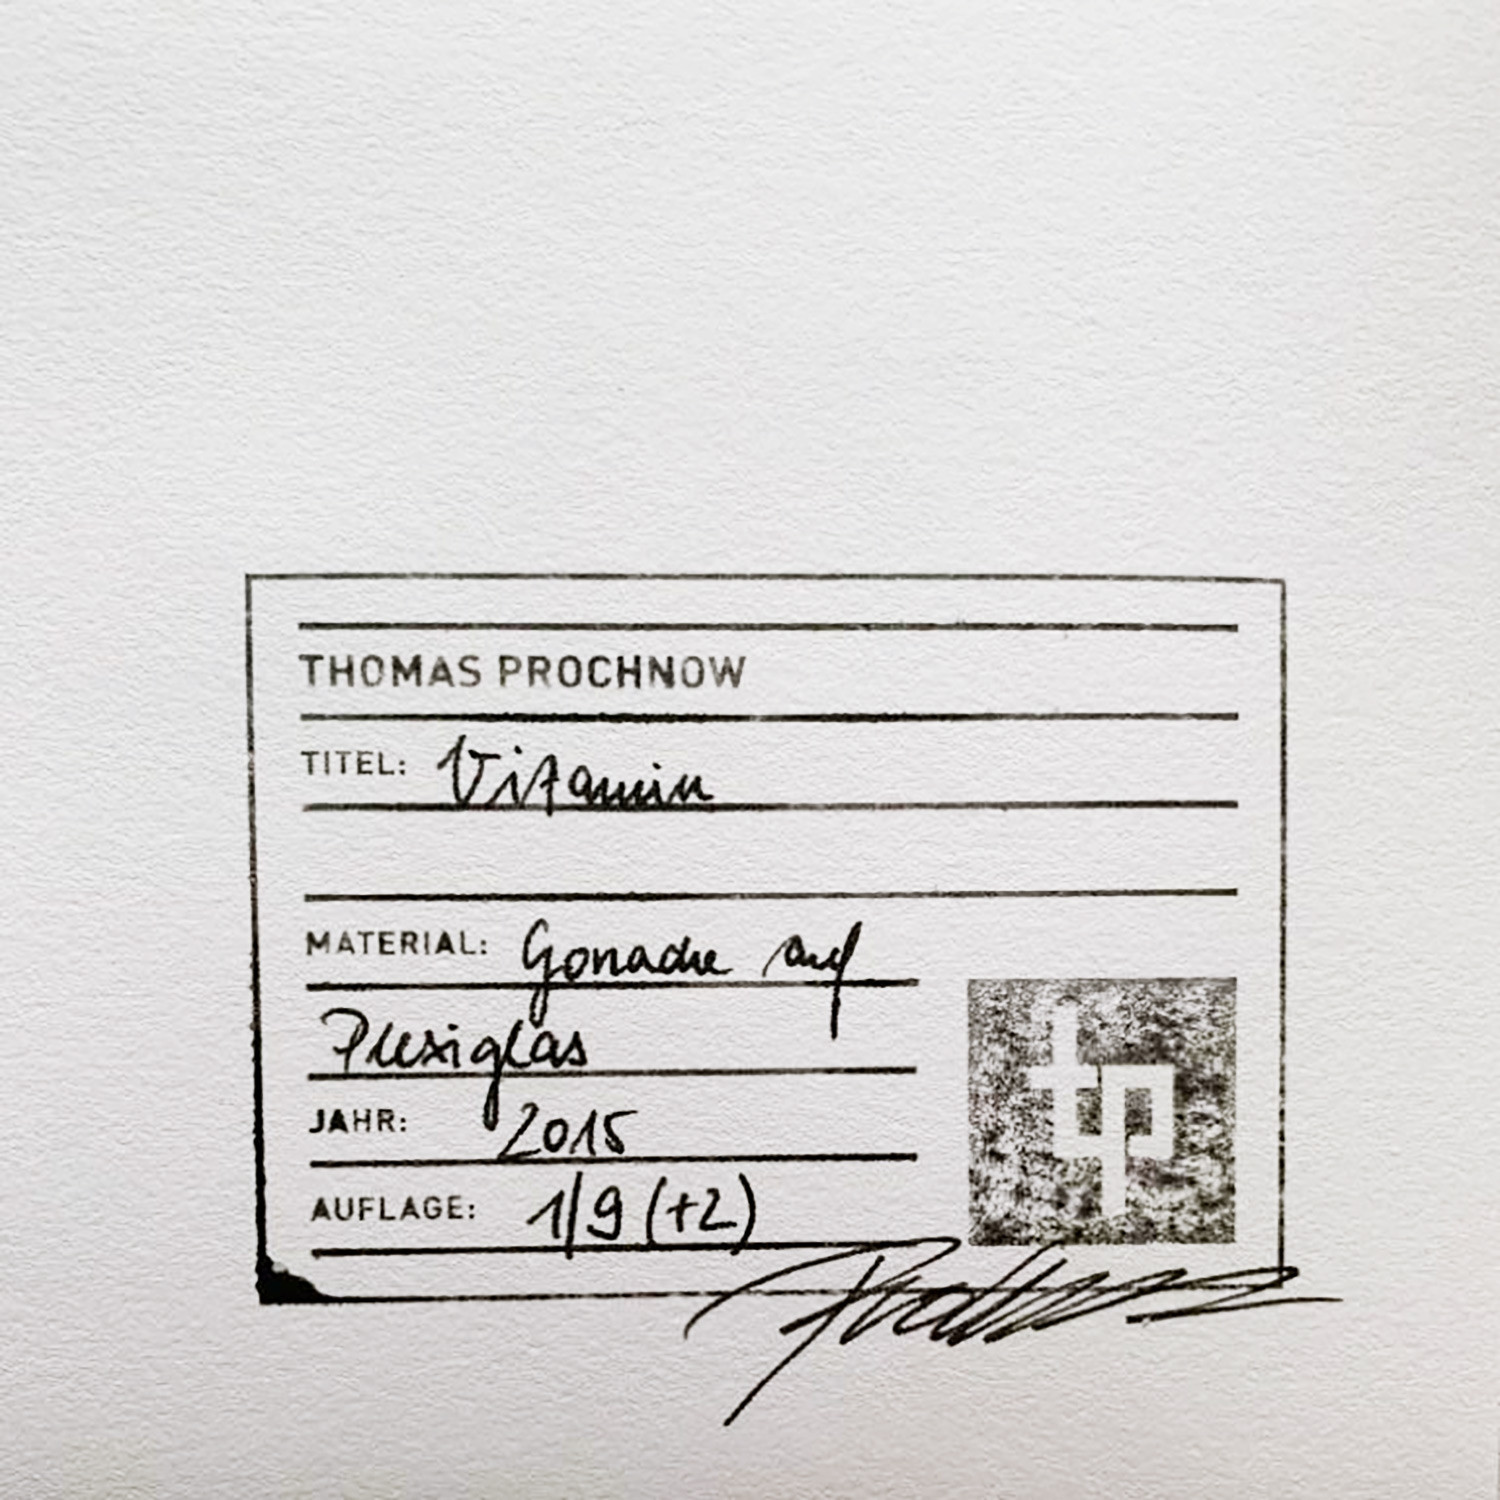 THOMAS PROCHNOW
TITEL: Vitamin
MATERIAL: Gouache auf
Plexiglas
JAHR: 2015
AUFLAGE: 1/9 (+2)
tp